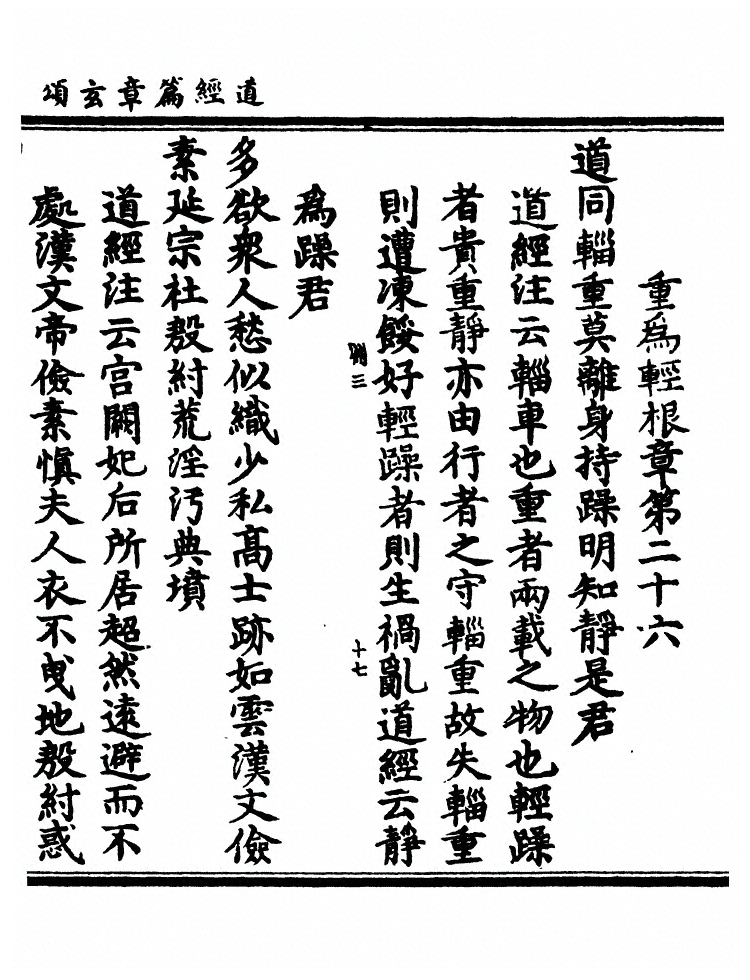 道經篇章玄頌
重爲輕根章第二十六
道同輜重莫離身持躁明知靜是君
道經注云輜車也重者兩載之物也輕躁
者貴重靜亦由行者之守輜重故失輜重
則遭凍餒好輕躁者則生禍亂道經云靜
三
十七
爲躁君
多欲衆人愁似織少私高士跡如雲漢文儉
素延宗社殷紂荒淫汚典墳
道經注云宫闕妃后所居超然遠避而不
處漢文帝儉素愼夫人衣不曳地殷紂惑